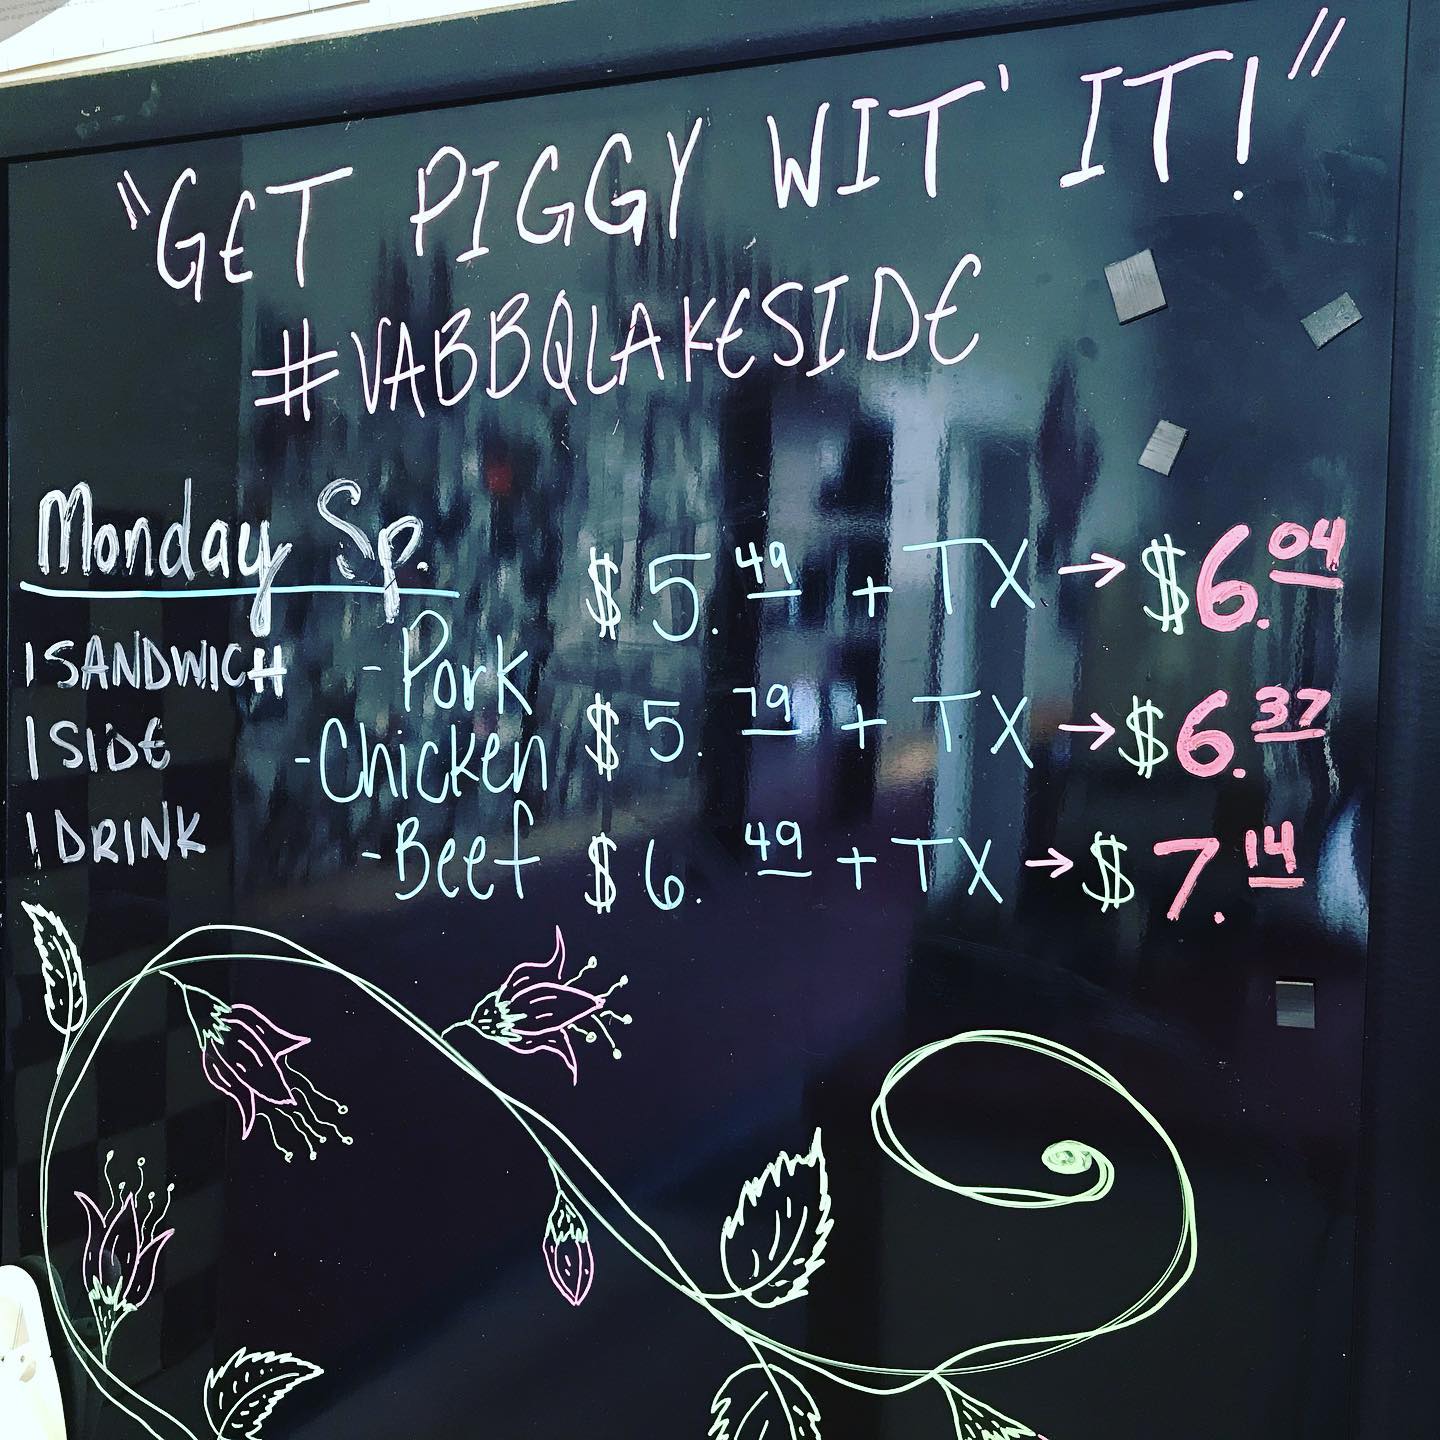 "GET PIGGY WIT' IT!"
#VABBQLAKESIDE
Monday Sp.
1 SANDWICH
1 SIDE
1 DRINK
- Pork $5.49 + TX → $6.04
- Chicken $5.79 + TX → $6.37
- Beef $6.49 + TX → $7.14